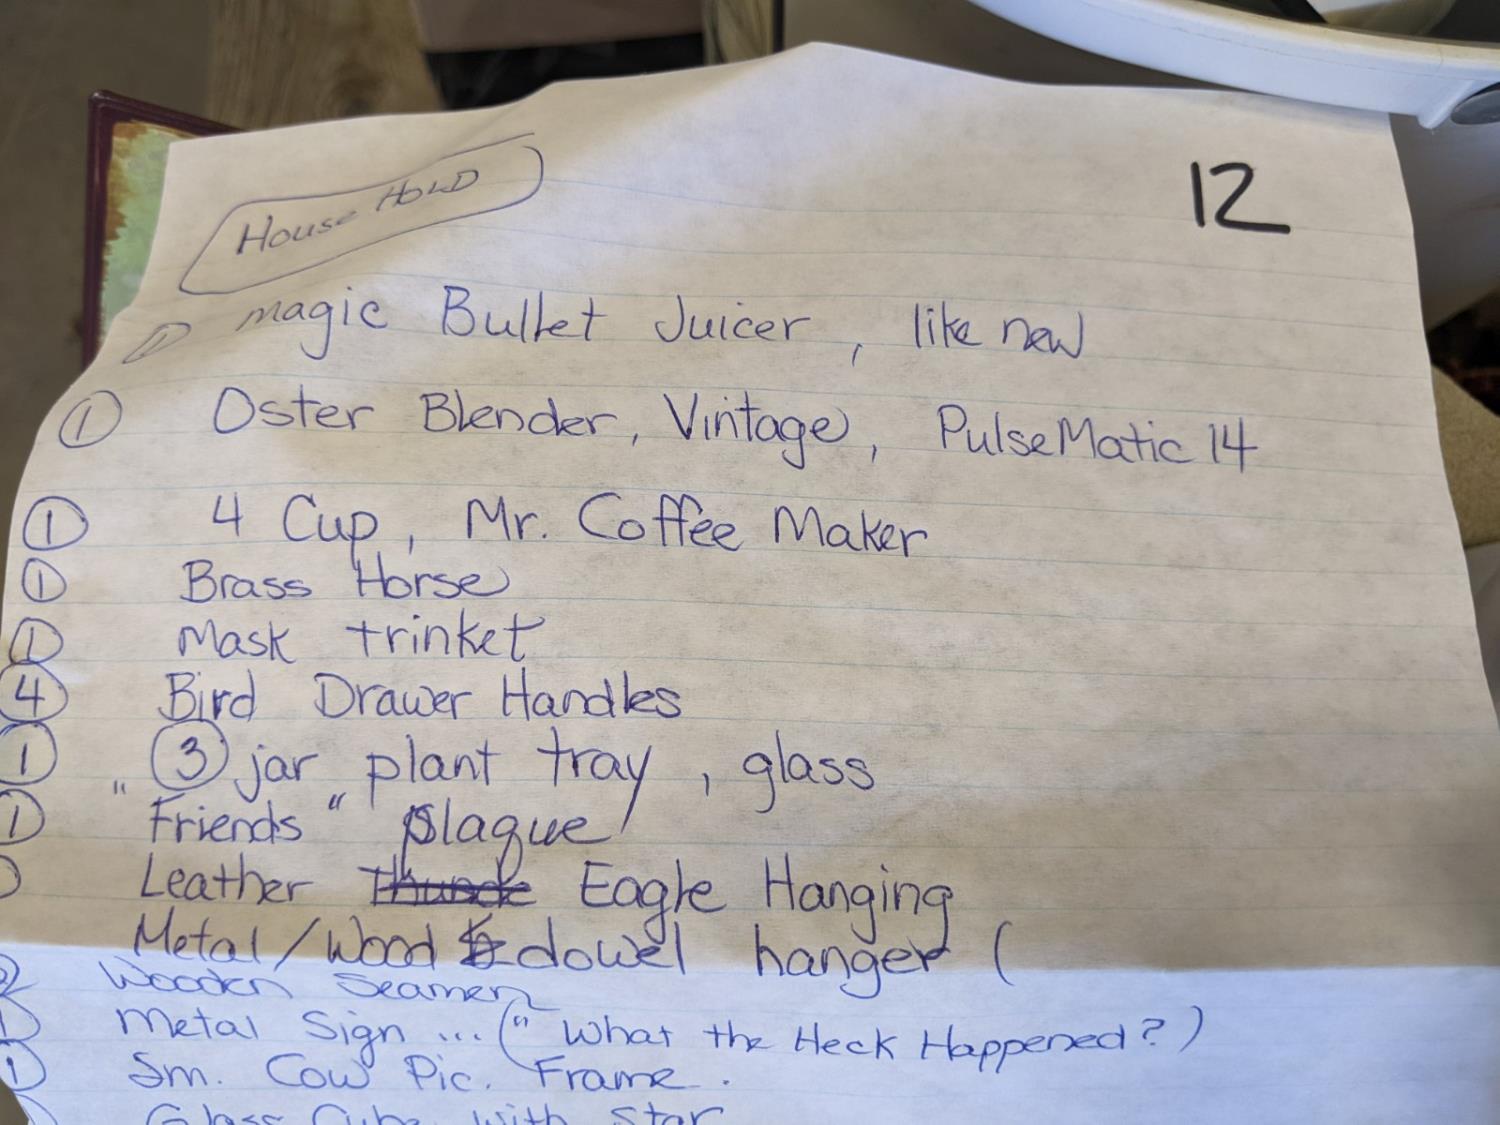 House HOLD
12
① magic Bullet Juicer, like new
① Oster Blender, Vintage, PulseMatic 14
① 4 Cup, Mr. Coffee Maker
① Brass Horse
① Mask trinket
④ Bird Drawer Handles
① ③ jar plant tray, glass
① "Friends" plaque
Leather Eagle Hanging
Metal/Wood dowel hanger (
② Wooden Seamen
① Metal Sign ... ("What the Heck Happened?)
① Sm. Cow Pic. Frame.
Glass Cube with Star